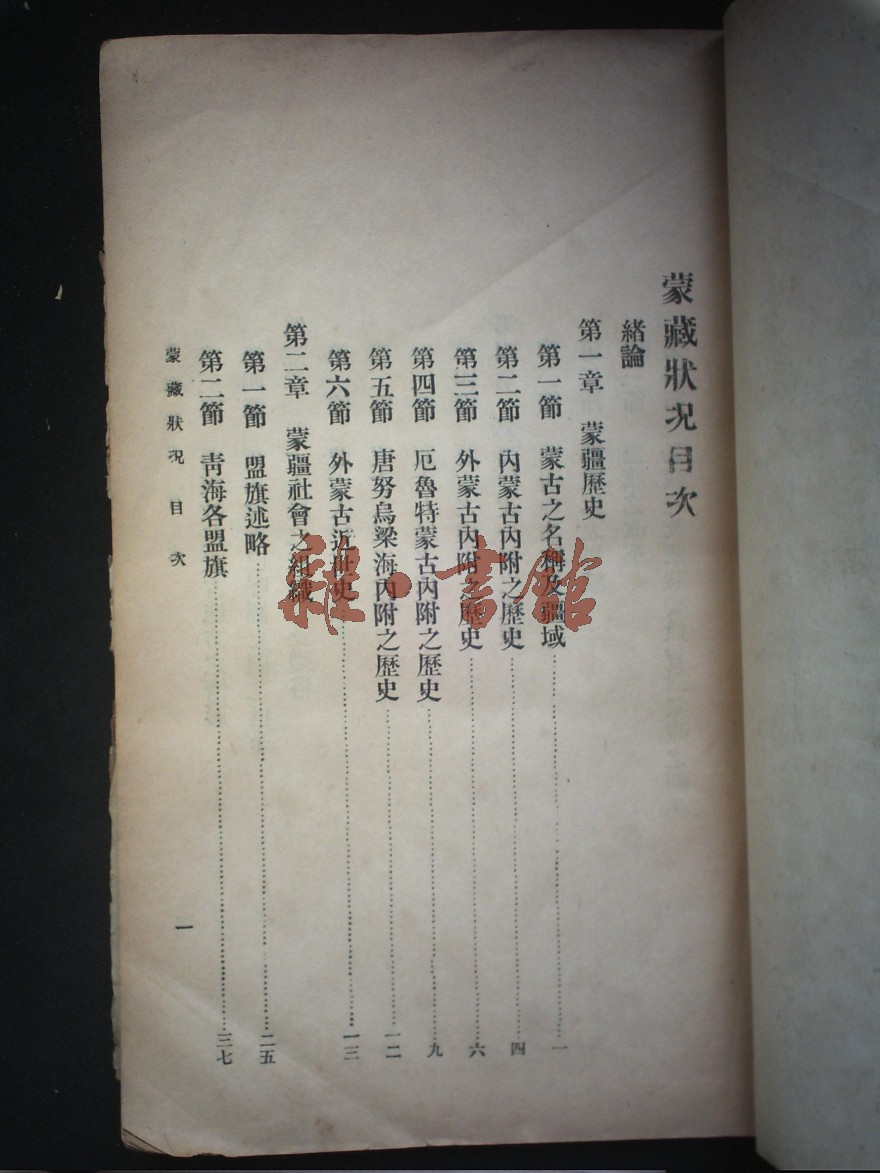 蒙藏狀況目次
緒論
第一章 蒙疆歷史
第一節 蒙古之名稱及疆域 一
第二節 內蒙古內附之歷史 四
第三節 外蒙古內附之歷史 六
第四節 厄魯特蒙古內附之歷史 九
第五節 唐努烏梁海內附之歷史 一二
第六節 外蒙古近世史 一三
第二章 蒙疆社會之組織
第一節 盟旗述略 二五
第二節 靑海各盟旗 三七
蒙藏狀況 目次 一
雜·書館